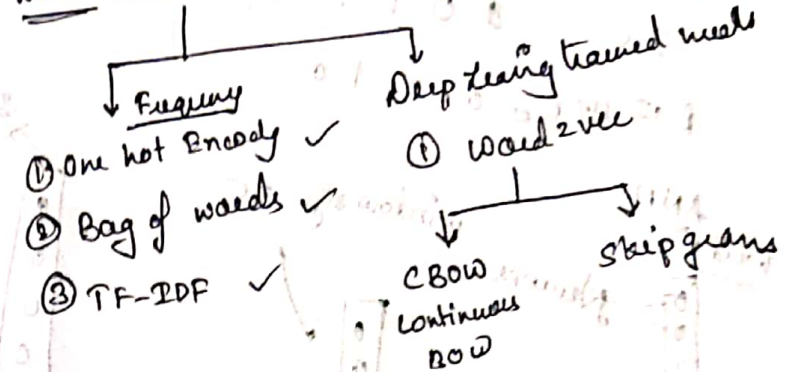 Frequency
① One hot Encody ✓
② Bag of words ✓
③ TF-IDF ✓
Deep Learning trained
① word2vec
CBOW
Continuous
BOW
Skipgrams